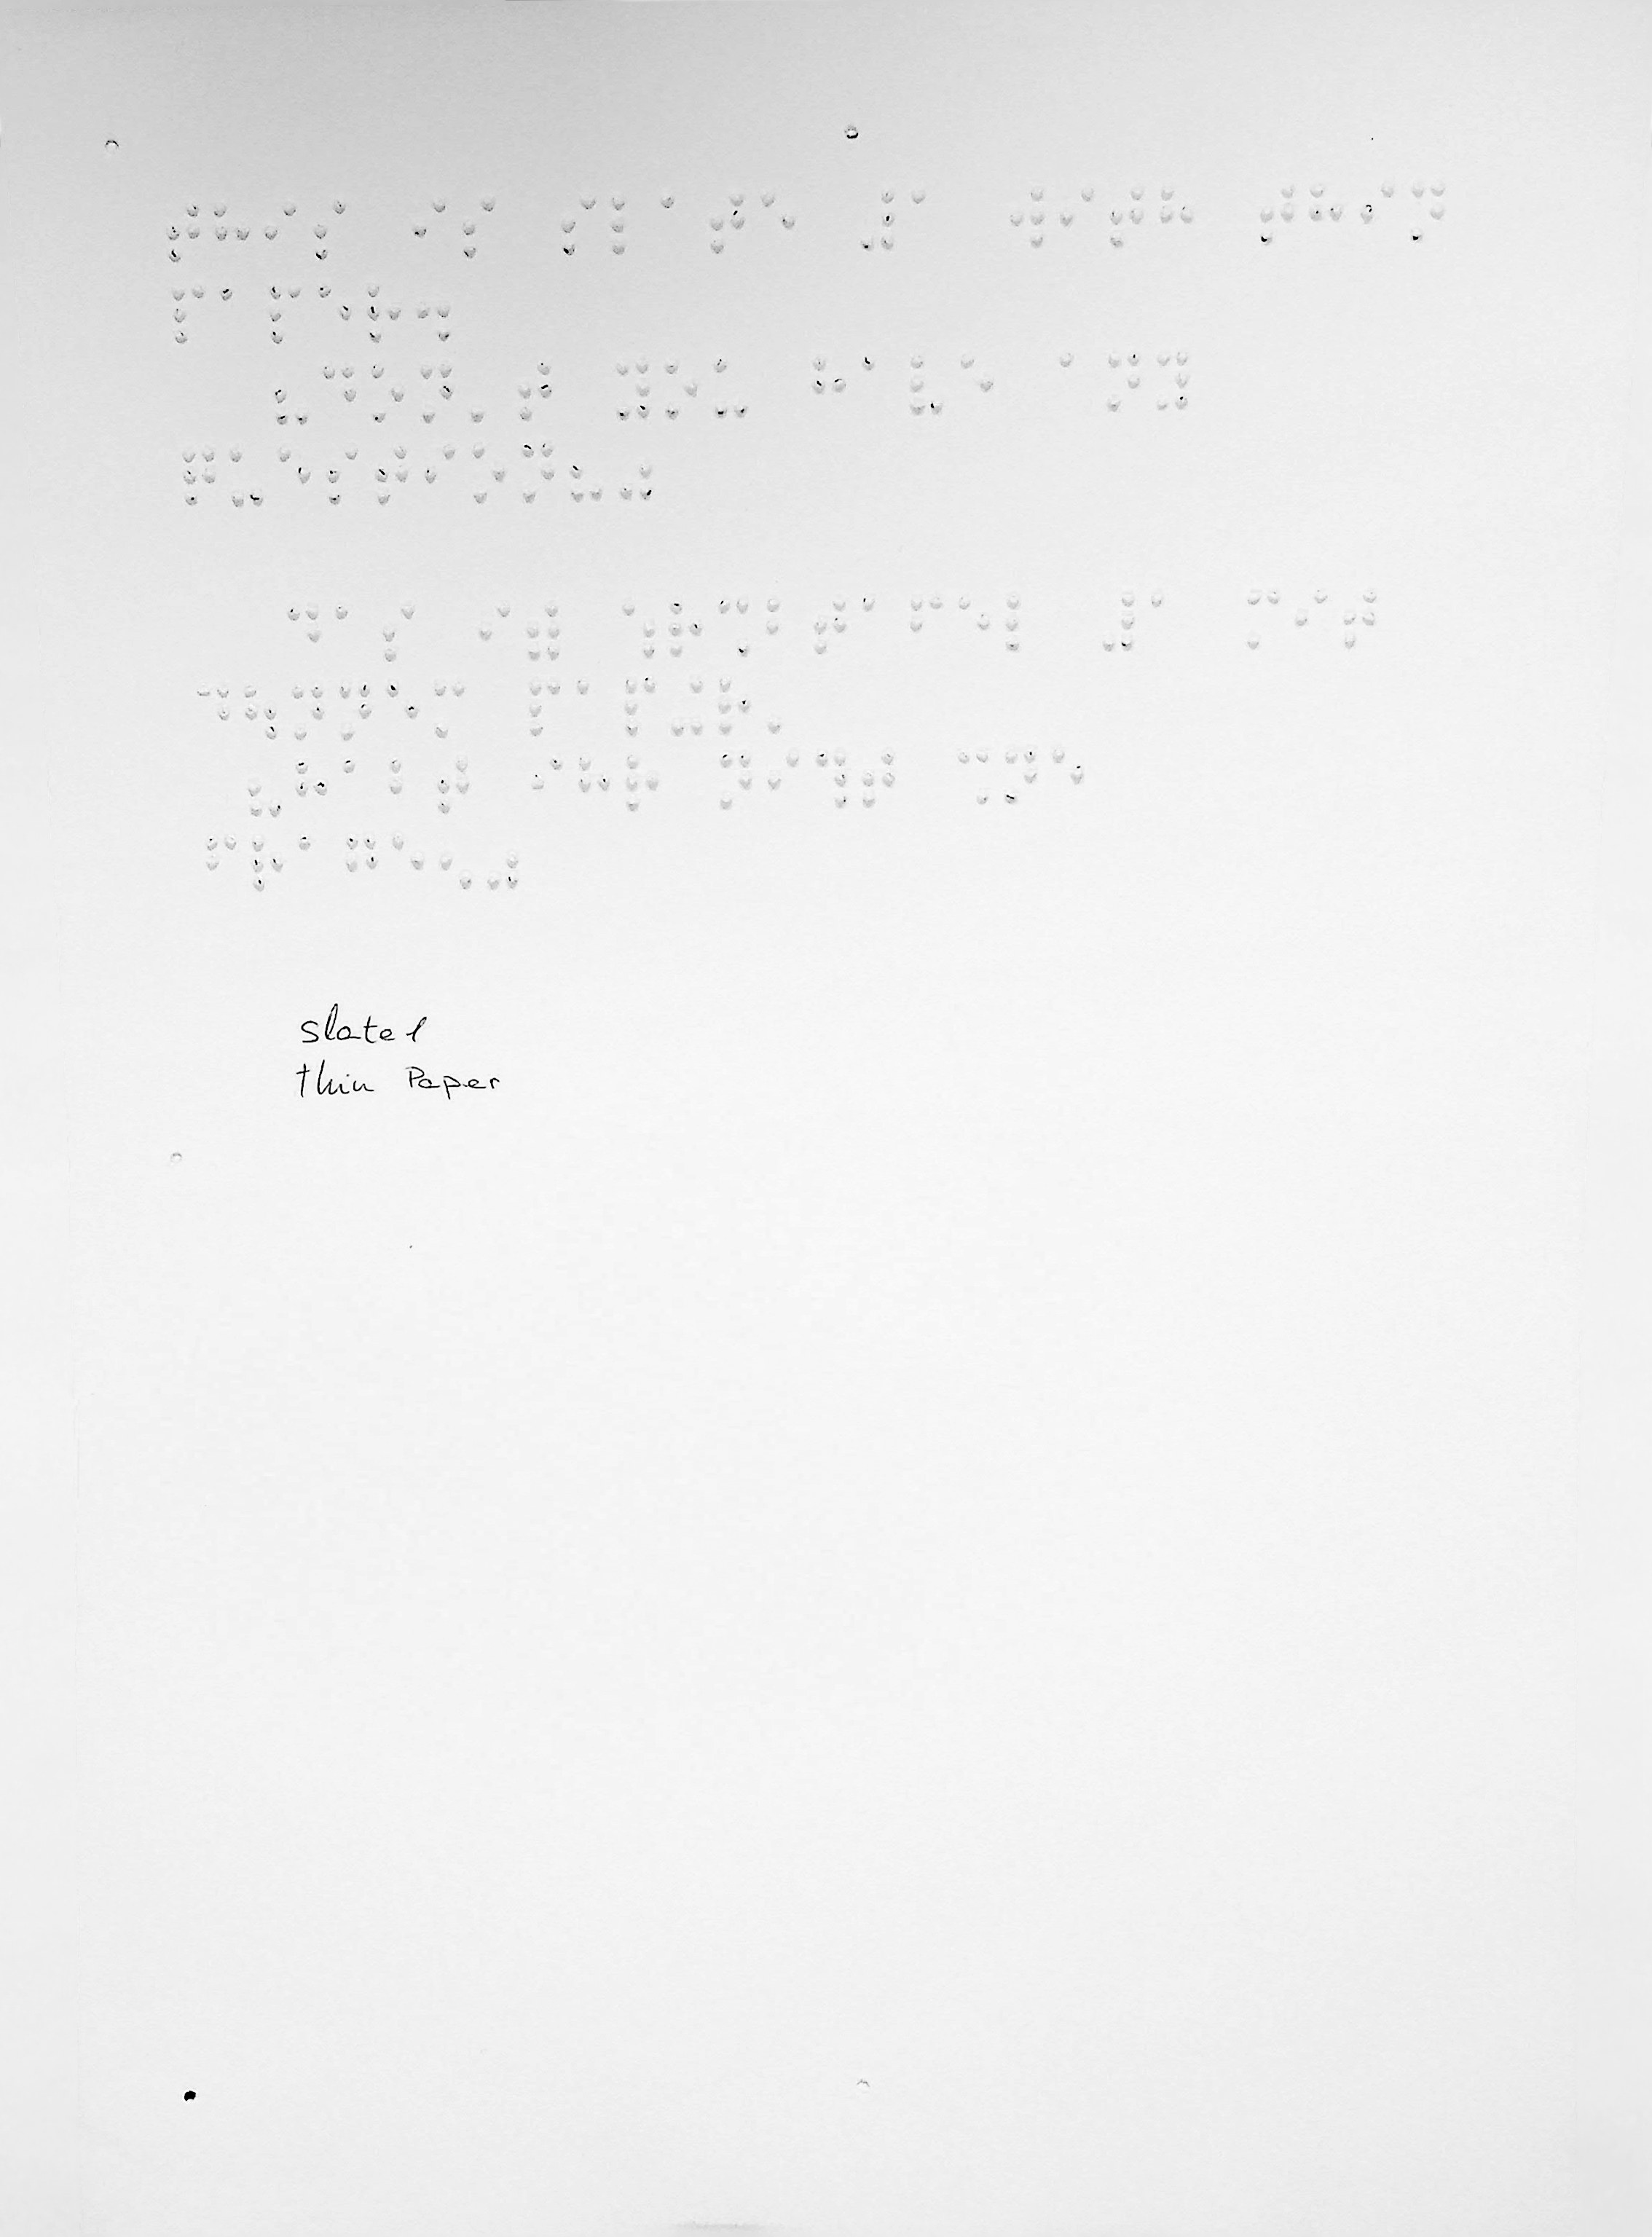 ⠞⠓⠊⠎ ⠊⠎ ⠎⠇⠁⠞⠑ ⠼⠁ ⠺⠊⠞⠓ ⠞⠓⠊⠝
⠏⠁⠏⠑⠗⠲
⠦⠙⠕⠝⠄⠞ ⠽⠕⠥ ⠓⠁⠧⠑ ⠁ ⠝⠽
⠟⠥⠑⠎⠞⠊⠕⠝⠦⠴
⠙⠁⠎ ⠊⠾ ⠱⠗⠩⠃⠞⠁⠋⠑⠇ ⠼⠁ ⠍⠊⠞
⠙⠳⠝⠝⠑⠍ ⠏⠁⠏⠬⠗⠄
⠦⠓⠁⠃⠞ ⠊⠓⠗ ⠝⠊⠹⠞ ⠩⠝⠑
⠋⠗⠁⠛⠑⠢⠴
slate 1
thin Paper